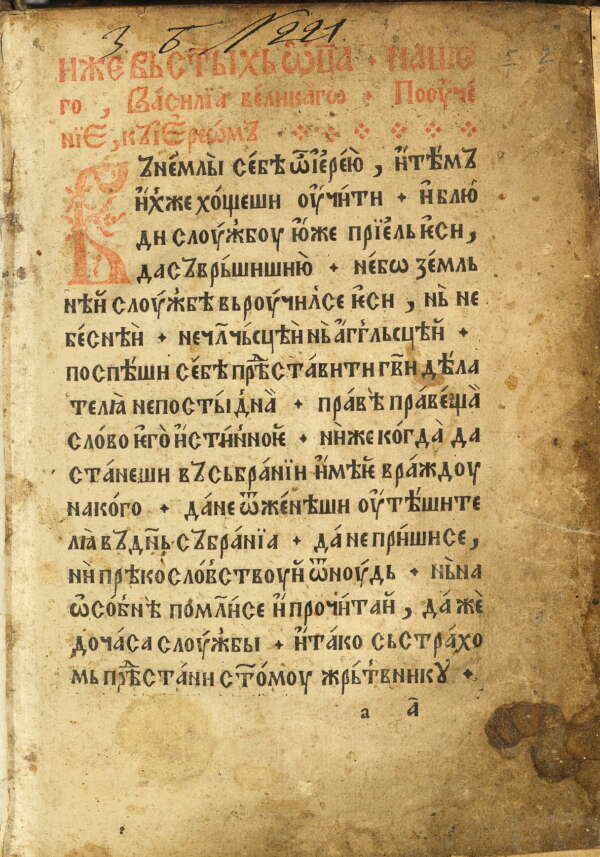 З Б № 221
И҆́же въ ст҃ы́хъ ѿц҃а · на́ше
го , Васи́лїа вели́кагѡ · Поѹ҆че́
нїе, къ їере́ѡмъ
Въне́млы себѣ̀ ѽ і҆ере́ю , и҆ тѣ́мъ
и҆́хже хо́щеши ѹ҆чи́ти · и҆ блю
ди слѹ́жбѹ ю҆́же прїе́ль ѥ҆си ,
да съврь́шишню · не́бѡ зе́мль
нѣй слѹ́жбѣ въ рѹчи́лсе ѥ҆си , нь не
бе́снѣй · не чл҃чьсцѣ́й нь а҆́гг҃льсцѣй ·
поспѣ́ши се́бѣ прⷣѣста́вити гв҃и дѣ́ла
телꙗ непосты́дна · пра́вѣ пра́веща
сло́во ѥ҆го и҆́стинноѥ · ниже ко́гда да
ста́неши въ събра́нїи и҆мѣ́ѥ вра́ждѹ
на ко́го · да́ не ѿжене́ши ѹ҆тѣ́шите
лꙗ въ дн҃ь събра́нїа · да́ не при́шисе ,
ни прѣ́кослов́ствѹй ѿнѹ́дь · нь на
ѡ҆со́бнѣ помл҃и́се и҆ прочи́тай , да́же
до ча́са слѹ́жбы · и҆ та́ко съ стра́хо
мь прⷣѣста́ни ст҃о́мѹ жрь́твникѹ ·
а а҃